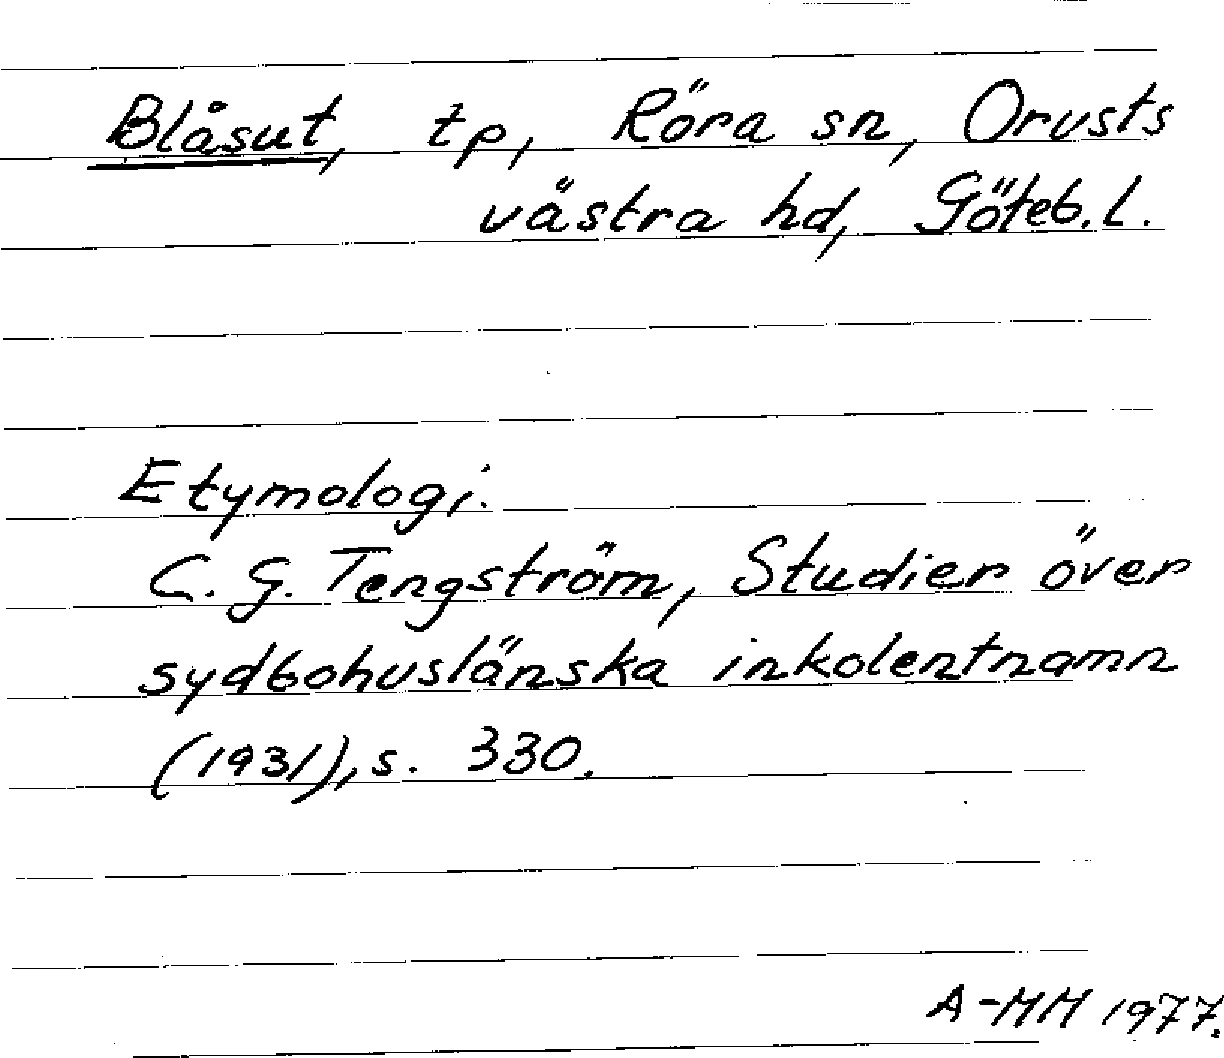 Blåsut, tp, Röra sn, Orusts
västra hd, Göteb. l.
Etymologi.
C. G. Tengström, Studier över
sydbohuslänska inkolentnamn
(1931), s. 330.
A-MM 1977.